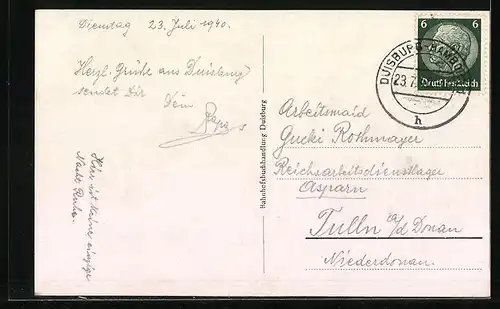 Dienstag 23. Juli 1940.
Herzl. Grüße aus Duisburg
sendet Dir
Dein
Papa
Hier ist keine einzige
Nacht Ruhe.
Bahnhofsbuchhandlung Duisburg
6 6
Deutsches Reich
DUISBURG-HAMBORN
23.7.
h
Arbeitsmaid
Gucki Rothmayer
Reichsarbeitsdienstlager
Asparn
Tulln a/d Donau
Niederdonau.